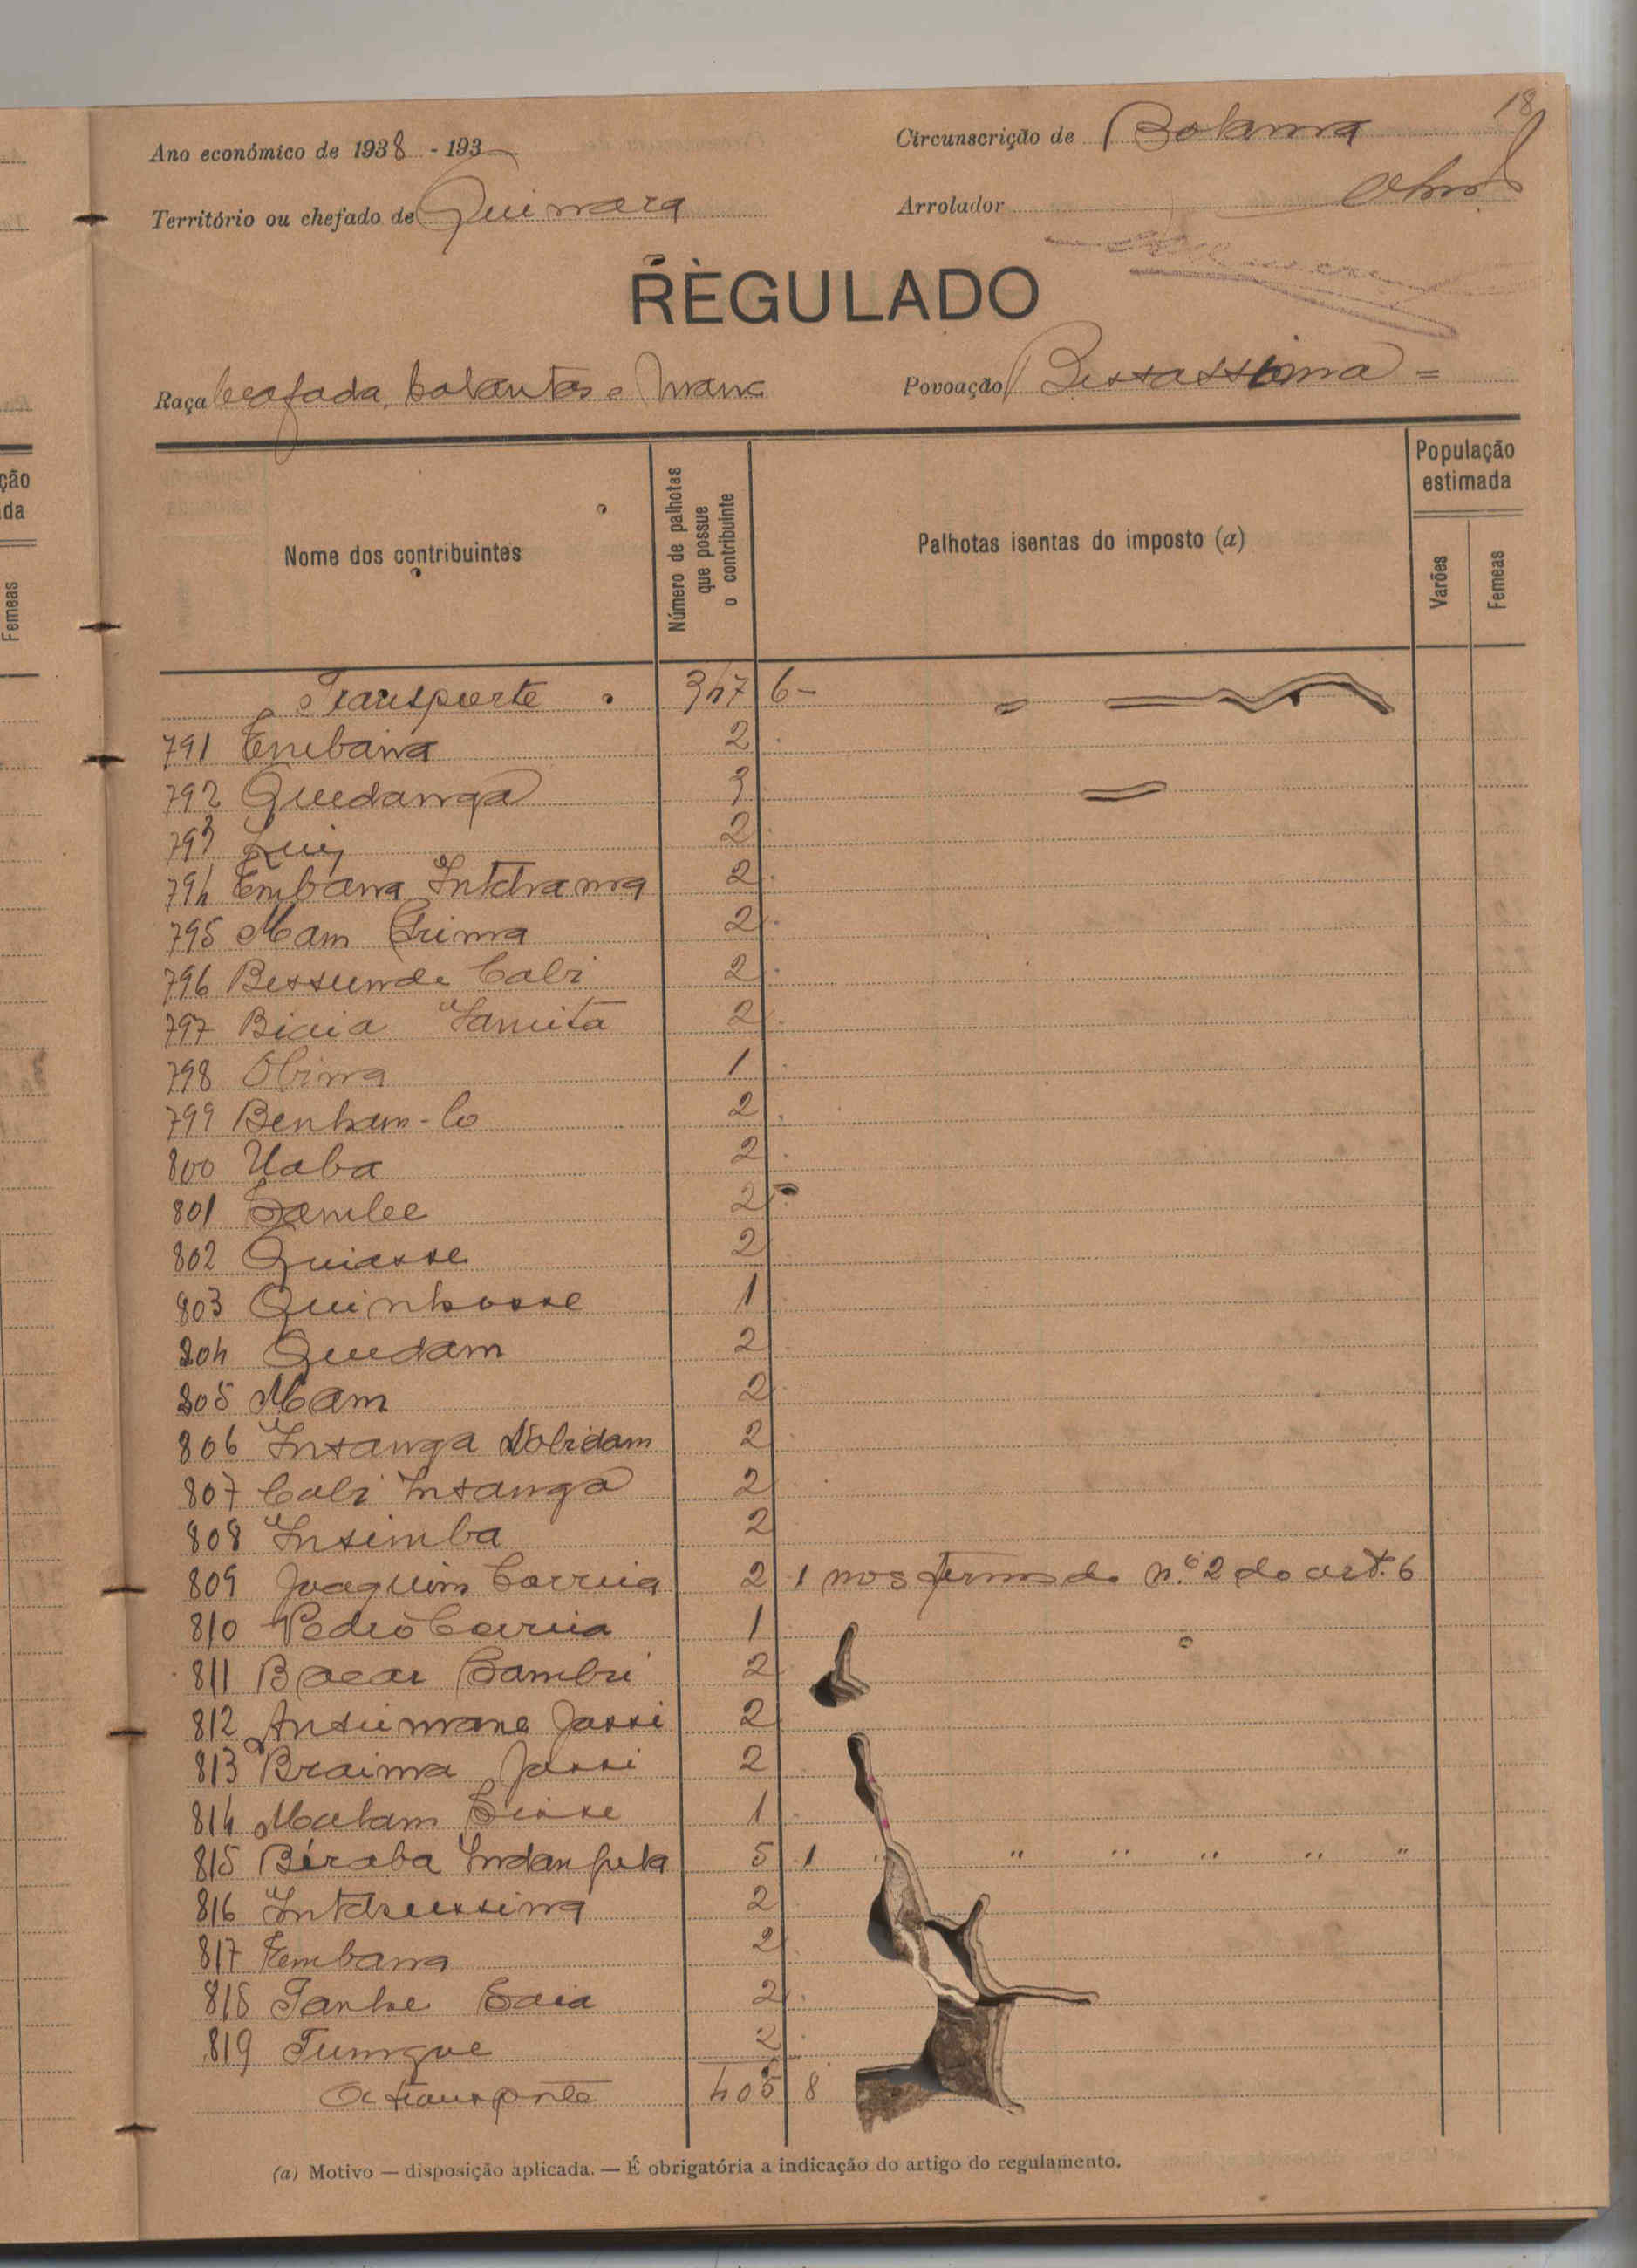 18
Ano económico de 1938 - 193
Circunscrição de Bolama
Território ou chefado de Quinara
Arrolador
REGULADO
Raça beafada, balantas e manc
Povoação Bissassima =
Nome dos contribuintes
Número de palhotas que possue o contribuinte
Palhotas isentas do imposto (a)
População estimada
Varões
Femeas
Transporte 347 6-
791 Embana 2
792 Quedanga 3
793 Luiz 2
794 Embana Intchama 2
795 Mam Grima 2
796 Bessunde Cabi 2
797 Biuia Iamita 2
798 Obima 1
799 Benham-Co 2
800 Uaba 2
801 Sambu 2
802 Quiasse 2
803 Quinhosse 1
804 Quedam 2
805 Mam 2
806 Insanga Nobidam 2
807 Cabi Insanga 2
808 Insimba 2
809 Joaquim Correia 2 1 nos termos do n.º 2 do art. 6
810 Pedro Correia 1
811 Bacar Camhi 2
812 Ansumane Jassi 2
813 Braima Jassi 2
814 Malam Cisse 1
815 Biraba Indanfata 5 1 " " " " " "
816 Intchussina 2
817 Embana 2
818 Sanhe Saia 2
819 Tungue 2
A transporte 405 8
(a) Motivo — disposição aplicada. — É obrigatória a indicação do artigo do regulamento.
ção
da
Femeas